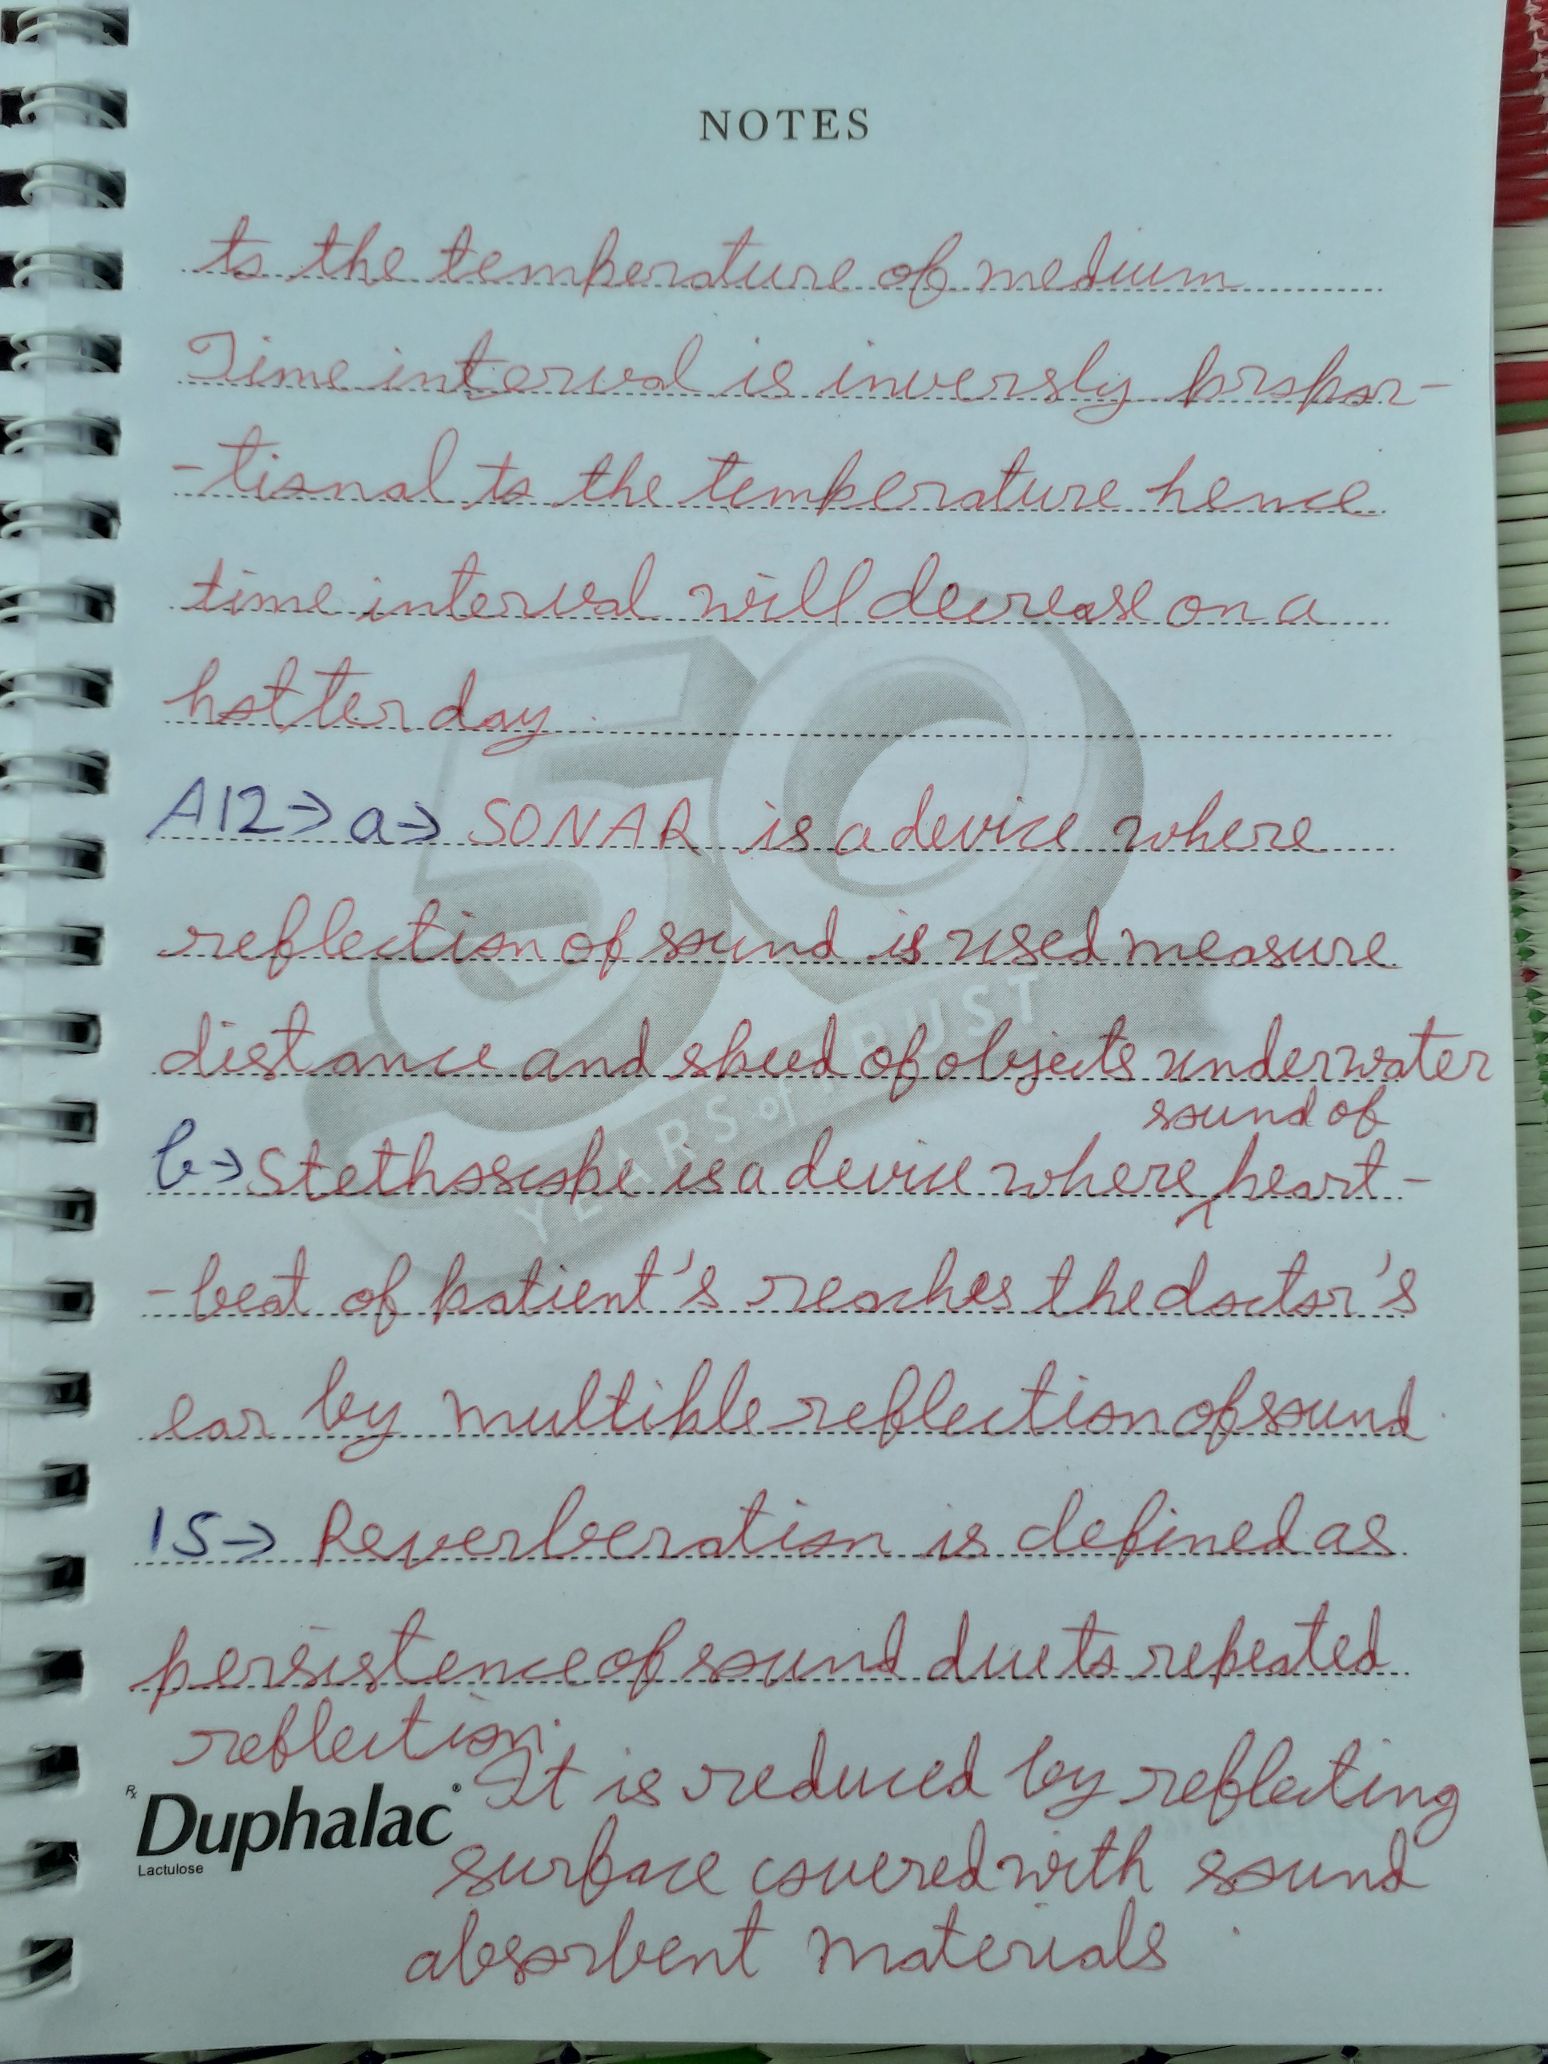 NOTES
to the temperature of medium
Time interval is inversly propor-
-tional to the temperature hence
time interval will decrease on a
hotter day
A12→ a→ SONAR is a device where
reflection of sound is used measure
distance and speed of objects underwater
sound of
b→ Stethoscope is a device where ^ heart-
-beat of patient's reaches the doctor's
ear by multiple reflection of sound.
15→ Reverberation is defined as
persistence of sound due to repeated
reflection.
It is reduced by reflecting
surface covered with sound
absorbent materials
50
YEARS of TRUST
Rx Duphalac®
Lactulose